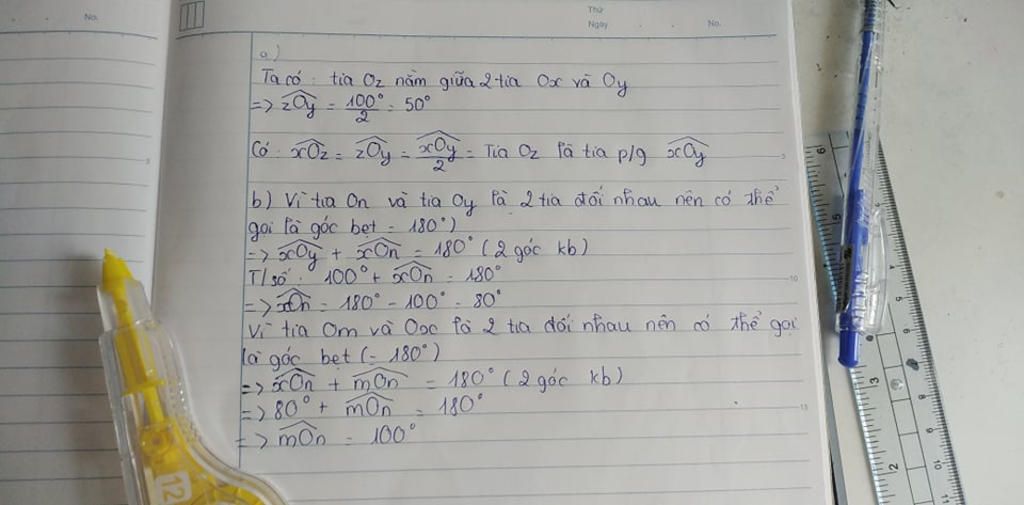 No.
Thứ
Ngày
No.
a)
Ta có : tia Oz nằm giữa 2 tia Ox và Oy
=> zOy = 100°/2 = 50°
Có : xOz = zOy = xOy/2 = Tia Oz là tia p/g xOy
b) Vì tia On và tia Oy là 2 tia đối nhau nên có thể
gọi là góc bẹt = 180°)
=> xOy + xOn = 180° (2 góc kb)
T/số : 100° + xOn = 180°
=> xOn = 180° - 100° = 80°
Vì tia Om và Ox là 2 tia đối nhau nên có thể gọi
là góc bẹt (= 180°)
=> xOn + mOn = 180° (2 góc kb)
=> 80° + mOn = 180°
=> mOn = 100°
5
5
10
15
12
5
13
2
10
11